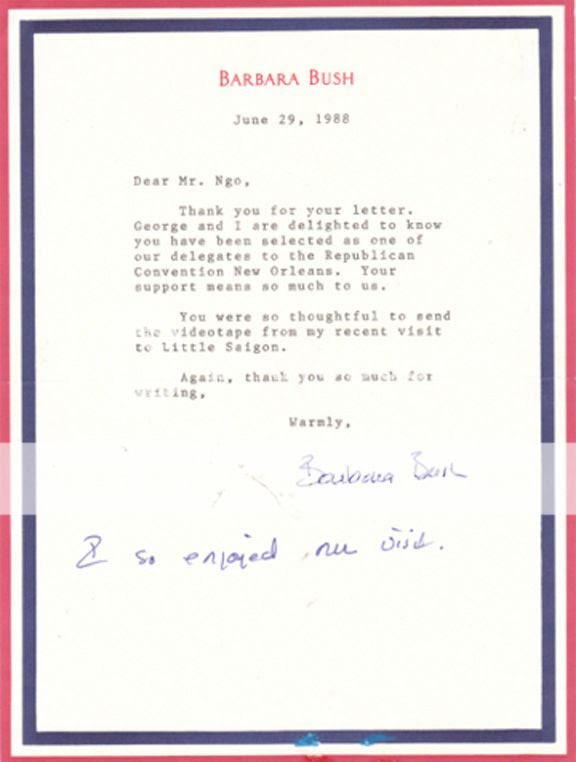 BARBARA BUSH
June 29, 1988
Dear Mr. Ngo,
Thank you for your letter.
George and I are delighted to know
you have been selected as one of
our delegates to the Republican
Convention New Orleans. Your
support means so much to us.
You were so thoughtful to send
the videotape from my recent visit
to Little Saigon.
Again, thank you so much for
writing,
Warmly,
Barbara Bush
I so enjoyed my visit.